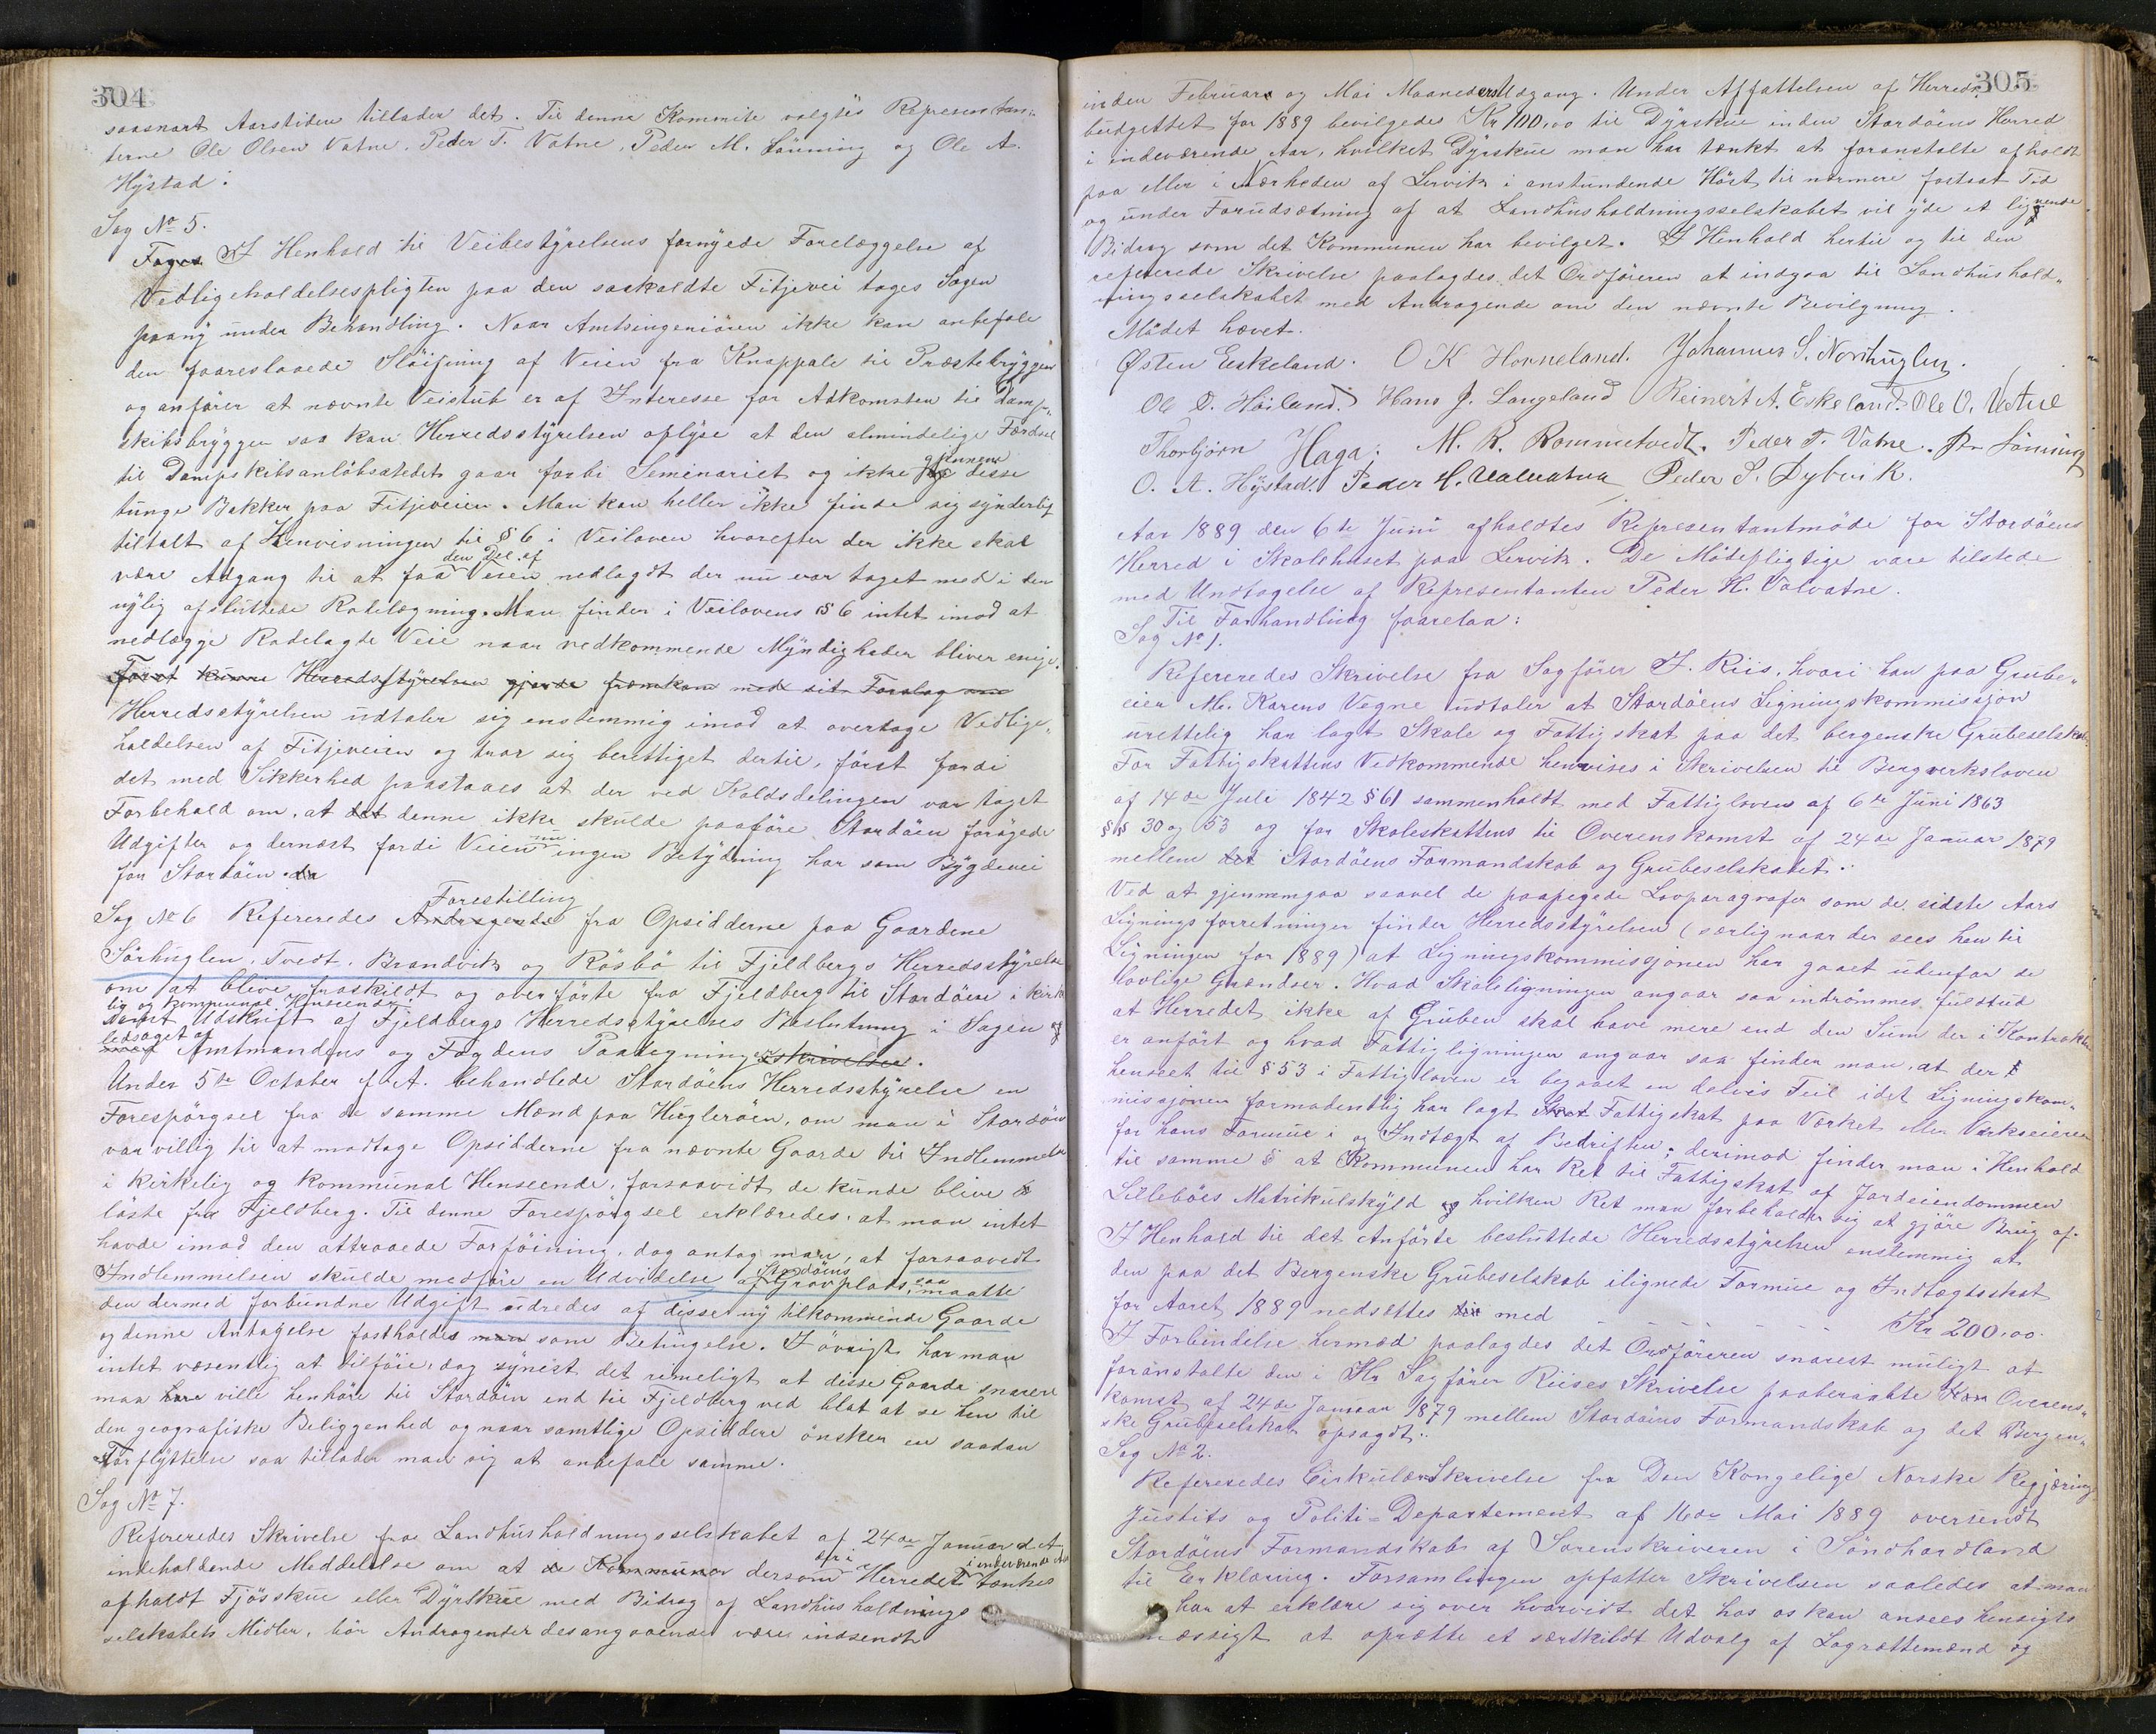 304
saasnart Aarstiden tillader det. Til denne Kommite valgtes Representan„
terne Ole Olsen Vatne, Peder T. Vatne, Peder M. Lönning og Ole A.
Hystad.
Sag No 5.
I Henhold til Veibestyrelsens fornyede Forelæggelse af
Vedligeholdelsespligten paa den saakaldte Fitjevei toges Sagen
paany under Behandling. Naar Amtsingeniören ikke kan anbefale
den foareslaaede Slöifning af Veien fra Knappale til Præstebryggen
og anförer at nævnte Veistub er af Interesse for Adkomsten til Damp„
skibsbryggen saa kan Herredsstyrelsen oplyse at den almindelige Færdsel
til Dampskibsanlöbsstedet gaar forbi Seminariet og ikke gjennem disse
tunge Bakker paa Fitjeveien. Man kan heller ikke finde sig synderlig
tiltalt af Henvisningen til § 6 i Veiloven hvorefter der ikke skal
være Adgang til at faa den Del af Veien nedlagdt der nu var taget med i den
nylig afsluttede Rodelægning. Man finder i Veilovens § 6 intet imod at
nedlægge Rodelagte Veie naar vedkommende Myndigheder bliver enige.
Först kunne Herredsstyrelsen gjorde fremkom med sit Forslag om
Herredsstyrelsen udtaler sig enstemmig imod at overtage Vedlige„
holdelsen af Fitjeveien og tror sig berettiget dertil, först fordi
det med Sikkerhed paastaaes at der ved Koldsdelingen var taget
Forbehold om, at det denne ikke skulde paaföre Stordöen forögede
Udgifter og dernæst fordi Veien nu ingen Betydning har som Bygdevei
for Stordöen. da
Sag No 6 Refereredes Andragende Forestilling fra Opsidderne paa Gaardene
Sörhuglen, Tvedt, Brandvik og Rösbö til Fjeldbergs Herredsstyrelse
om at blive fraskildt og overförte fra Fjeldberg til Stordöen i kirke
lig og kommunal Henseende.
Udskrift af Fjeldbergs Herredsstyrelses Beslutning i Sagen og
ledsaget af Amtmandens og Fogdens Paategning skrivelser.
Under 5te October f. A. behandlede Stordöens Herredsstyrelse en
Forespörgsel fra de samme Mænd paa Hugleröen, om man i Stordöen
var villig til at modtage Opsidderne fra nævnte Gaarde til Indlemmelse
i kirkelig og kommunal Henseende, forsaavidt de kunde blive
löste fra Fjeldberg. Til denne Forespörgsel erklæredes, at man intet
havde imod den attraaede Forföining, dog antog man, at forsaavidt
Indlemmelsen skulde medföre en Udvidelse af Stordöens Gravplads, saa maatte
den dermed forbundne Udgift udredes af disse ny tilkommende Gaarde
og denne Antagelse fastholdes man som Betingelse. I övrigt har man
intet væsentlig at tilföie, dog synest det rimeligt at disse Gaarde snarere
maa höre ville henhöre til Stordöen end til Fjeldberg ved blot at se hen til
den geografiske Beliggenhed og naar samtlige Opsiddere önsker en saadan
Forflyttelse saa tillader man sig at anbefale samme.
Sag No 7.
Refereredes Skrivelse fra Landhusholdningsselskabet af 24de Januar d. A.
indeholdende Meddelelse om at de Kommuner dersom der i Herredet i indeværende Aar tænkes
afholdt Fjösskue eller Dyrskue med Bidrag af Landhusholdnings
selskabets Midler, bör Andragender desangaaende være indsendt
305
inden Februar og Mai Maaneders Udgang. Under Affattelsen af Herreds„
budgettet for 1889 bevilgedes Kr 100,00 til Dyrskue inden Stordöens Herred
i indeværende Aar, hvilket Dyrskue man har tænkt at foranstalte afholdt
paa eller i Nærheden af Lervik i anstundende Höst til nærmere fastsat Tid
og under Forudsætning af at Landhusholdningsselskabet vil yde et lignende
Bidrag som det Kommunen har bevilget. I Henhold hertil og til den
refererede Skrivelse paalagdes det Ordföreren at indgaa til Landhushold„
ningsselskabet med Andragende om den nævnte Bevilgning.
Mödet hævet.
Østen Eskeland. O K Horneland. Johannes S. Nordhuglen.
Ole D. Höiland. Hans J. Langeland Reinert A. Eskeland. Ole O. Vatne
Thorbjörn Haga. M. R. Rommetvedt. Peder T. Vatne. P. M. Lönning
O. A. Hystad. Peder H. Valvatna Peder S. Dybvik.
Aar 1889 den 6te Juni afholdtes Representantmöde for Stordöens
Herred i Skolehuset paa Lervik. De Mödepligtige vare tilstede
med Undtagelse af Representanten Peder H. Valvatne.
Til Forhandling foarelaa:
Sag No 1.
Refereredes Skrivelse fra Sagförer I. Riis, hvori han paa Grube„
eier Mr. Karens Vegne udtaler at Stordöens Ligningskommissjon
urettelig har lagt Skole og Fattigskat paa det bergenske Grubeselskab.
For Fattigskattens Vedkommende henvises i Skrivelsen til Bergverksloven
af 14de Juli 1842 § 61 sammenholdt med Fattigloven af 6te Juni 1863
§§ 30 og 53 og for Skoleskattens til Overenskomst af 24de Januar 1879
mellem det Stordöens Formandskab og Grubeselskabet.
Ved at gjennemgaa saavel de paapegede Lovparagrafer som de sidste Aars
Ligningsforretninger finder Herredsstyrelsen (særlig naar der sees hen til
Ligningen for 1889) at Ligningskommissjonen har gaaet udenfor de
lovlige Grændser. Hvad Skoleligningen angaar saa indrömmes fuldtud
at Herredet ikke af Gruben skal have mere end den Sum der i Kontrakten
er anfört og hvad Fattigligningen angaar saa finder man, at der
henseet til § 53 i Fattigloven er begaaet en delvis Feil idet Ligningskom„
missjonen formodentlig har lagt Skat Fattigskat paa Værket eller Værkseieren
for hans Formue i og Indtægt af Bedriften; derimod finder man i Henhold
til samme § at Kommunen har Ret til Fattigskat af Jordeiendommen
Lillebös Matrikulskyld og hvilken Ret man forbeholder sig at gjöre Brug af.
I Henhold til det Anförte besluttede Herredsstyrelsen enstemmig at
den paa det Bergenske Grubeselskab ilignede Formue og Indtægtsskat
for Aaret 1889 nedsættes til med - - - - - - Kr 200,00.
I Forbindelse hermed paalagdes det Ordföreren snarest muligt at
foranstalte den i Hr Sagförer Riises Skrivelse paaberaabte Kon Overens„
komst af 24de Januar 1879 mellem Stordöens Formandskab og det Bergen„
ske Grubeselskab opsagdt.
Sag No 2.
Refereredes Cirkulær Skrivelse fra Den Kongelige Norske Regjerings
Justits og Politi=Departement af 16de Mai 1889 oversendt
Stordöens Formandskab af Sorenskriveren i Söndhordland
til Erklæring. Forsamlingen opfatter Skrivelsen saaledes at man
har at erklære sig over hvorvidt det hos os kan ansees hensigts
mæssigt at oprette et særskildt Udvalg af Lagrettemænd og